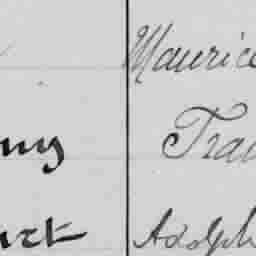 Maurice
ny Tra
urt Adolph